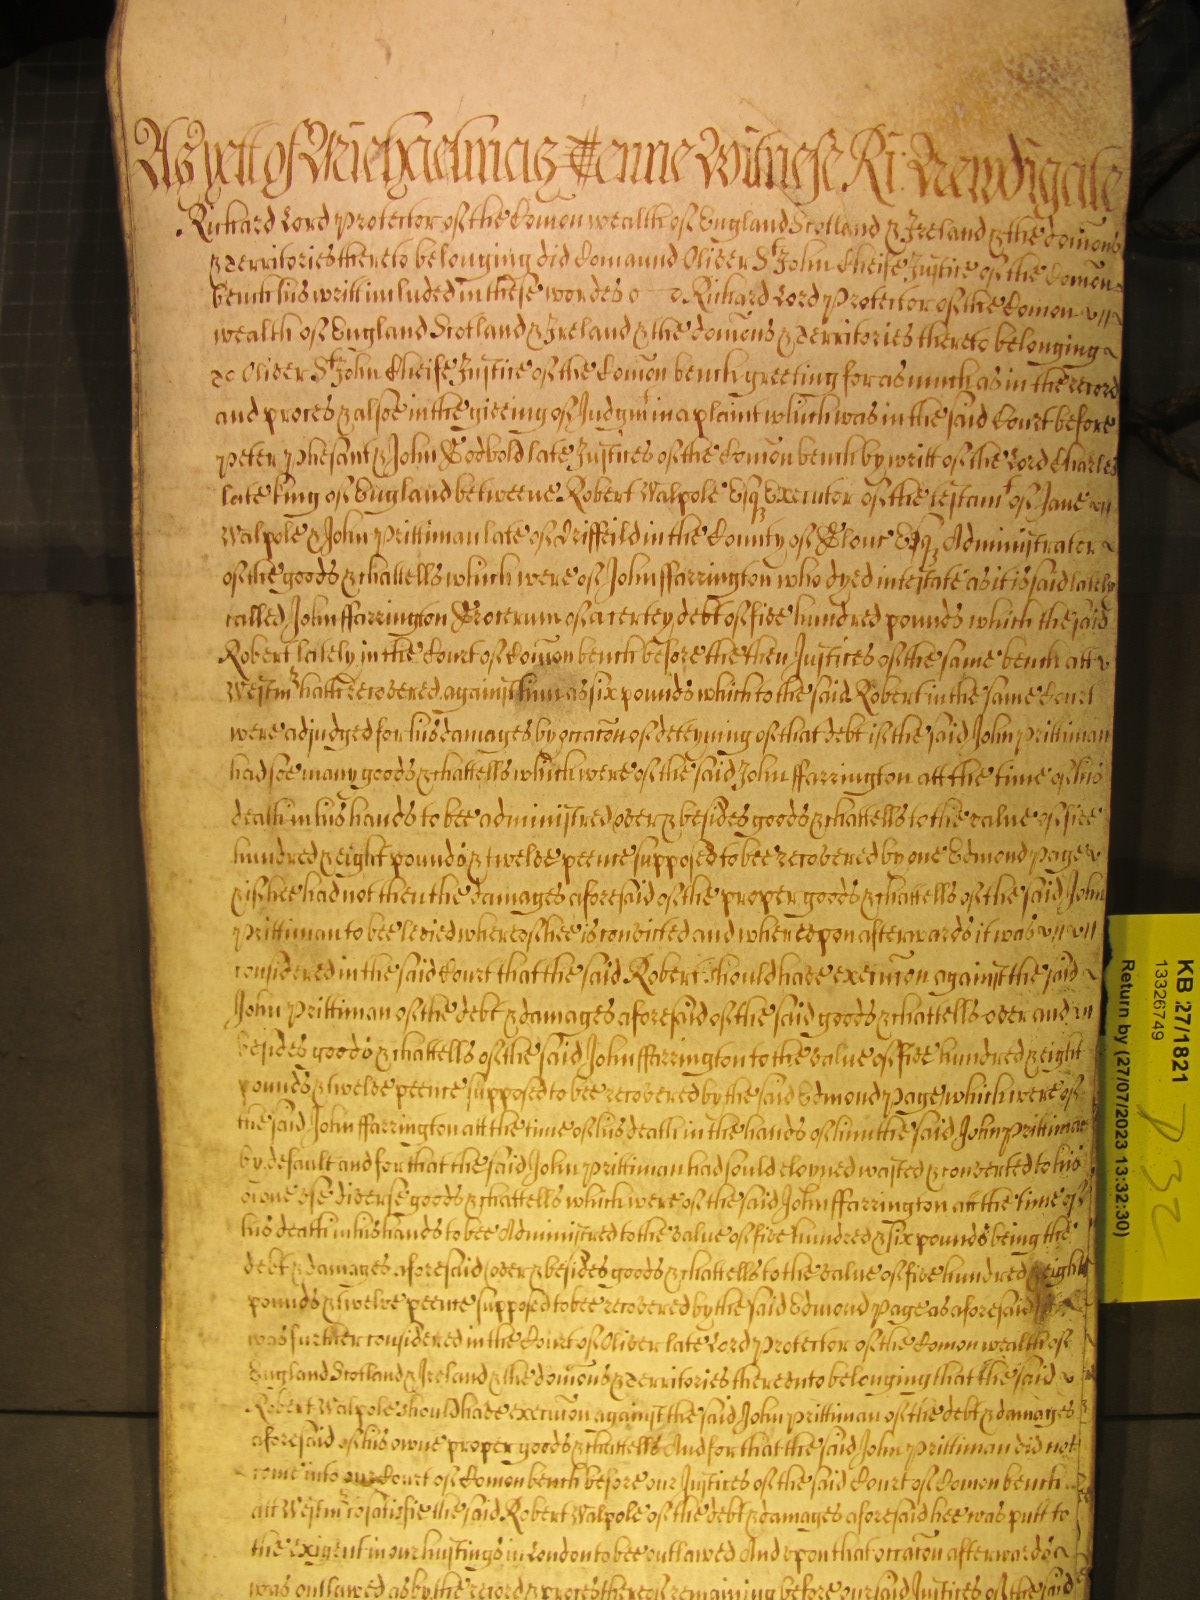 As yett of Michaelmas Terme Witnesse Ri: Newdigate
Richard Lord Protector of the Com̃onwealth of England Scotland & Ireland & the domin̄ons
& Territories thereto belonging did Comaund Oliver St John Cheife Justice of the Com̃on
bench his writt included in these wordes Richard Lord Protector of the Com̃on
wealth of England Scotland & Ireland & the domin̄ons & Territories thereto belonging
To Oliver St John Cheife Justice of the Com̃on bench greeting for as much as in the record
and proces & alsoe in the giveing of Judgmt in a plaint which was in the said Court before
Peter Phesant & John Godbold late Justices of the Com̃on bench by writt of the Lord Charles
late King of England betweene Robert Walpole Esqr Executor of the testamt of Jane
Walpole & John Prittiman late of Driffeild in the County of Glouc Esqr Administrator
of the goods & chattells which were of John ffarrington who dyed intestate as it is said lately
called John ffarrington of a certey debt of five hundred pounds which the said
Robert lately in the Court of Com̃on bench before the then Justices of the same bench att
Westmr hath recovered against him as six pounds which to the said Robert in the same Court
were adjudged for his damages by occac̃on of deteyning of that debt if the said John Prittiman
had soe many goods & chattells which were of the said John ffarrington att the time of his
death in his hands to bee administred over & besides goods & chattells to the value of five
hundred & eight pounds & twelve peence supposed to bee recovered by one Edmond Page
& if hee had not then the damages aforesaid of the proper goods & chattells of the said John
Prittiman to bee levied whereof hee is convicted and whereupon afterwards it was
considered in the said Court that the said Robert should have execuc̃on against the said
John Prittiman of the debt & damages aforesaid of the said goods & chattells over and
besides goods & chattells of the said John ffarrington to the value of five hundred & eight
pounds & twelve peence supposed to bee recovered by the said Edmond Page which were of
the said John ffarrington att the time of his death in the hands of him the said John Prittiman
by default and for that the said John Prittiman had sould eloyned wasted & converted to his
owne use diverse goods & chattells which were of the said John ffarrington att the time of
his death in his hands to bee Administred to the value of five hundred & six pounds being the
debt & damages aforesaid over & besides goods & chattells to the value of five hundred & eight
pounds & twelve peence supposed to bee recovered by the said Edmond Page as aforesaid
was further considered in the Court of Oliver late Lord Protector of the Com̃onwealth of
England Scotland & Ireland & the domin̄ons & Territories thereunto belonging that the said
Robert Walpole should have execuc̃on against the said John Prittiman of the debt & damages
aforesaid of his owne proper goods & chattells And for that the said John Prittiman did not
come into our Court of Com̃on bench before our Justices of the said Court of Com̃on bench
att Westmr to satisfie the said Robert Walpole of the debt & damages aforesaid hee was putt to
the exigent in our hustings in London to bee outlawed And upon that occac̃on afterwards
was outlawed as by the record & proces thereof remaining before our said Justices of the said
KB 27/1821
13326749
Return by (27/07/2023 13:32:30)